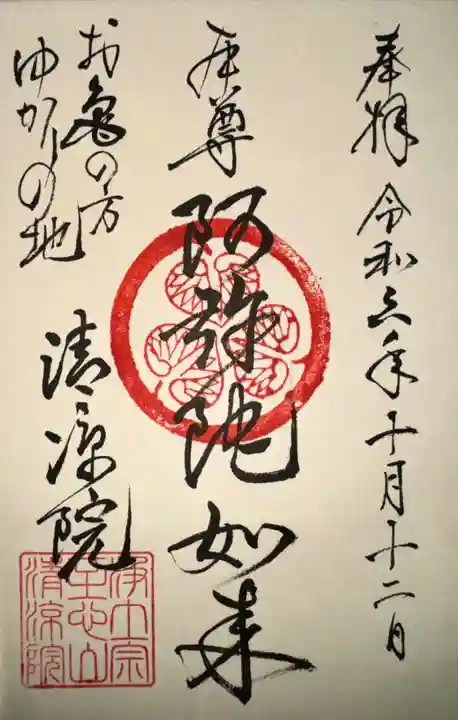 奉拝 令和六年十月十二日
本尊 阿弥陀如来
お亀の方
ゆかりの地
清涼院
浄土宗
至心山
清涼院